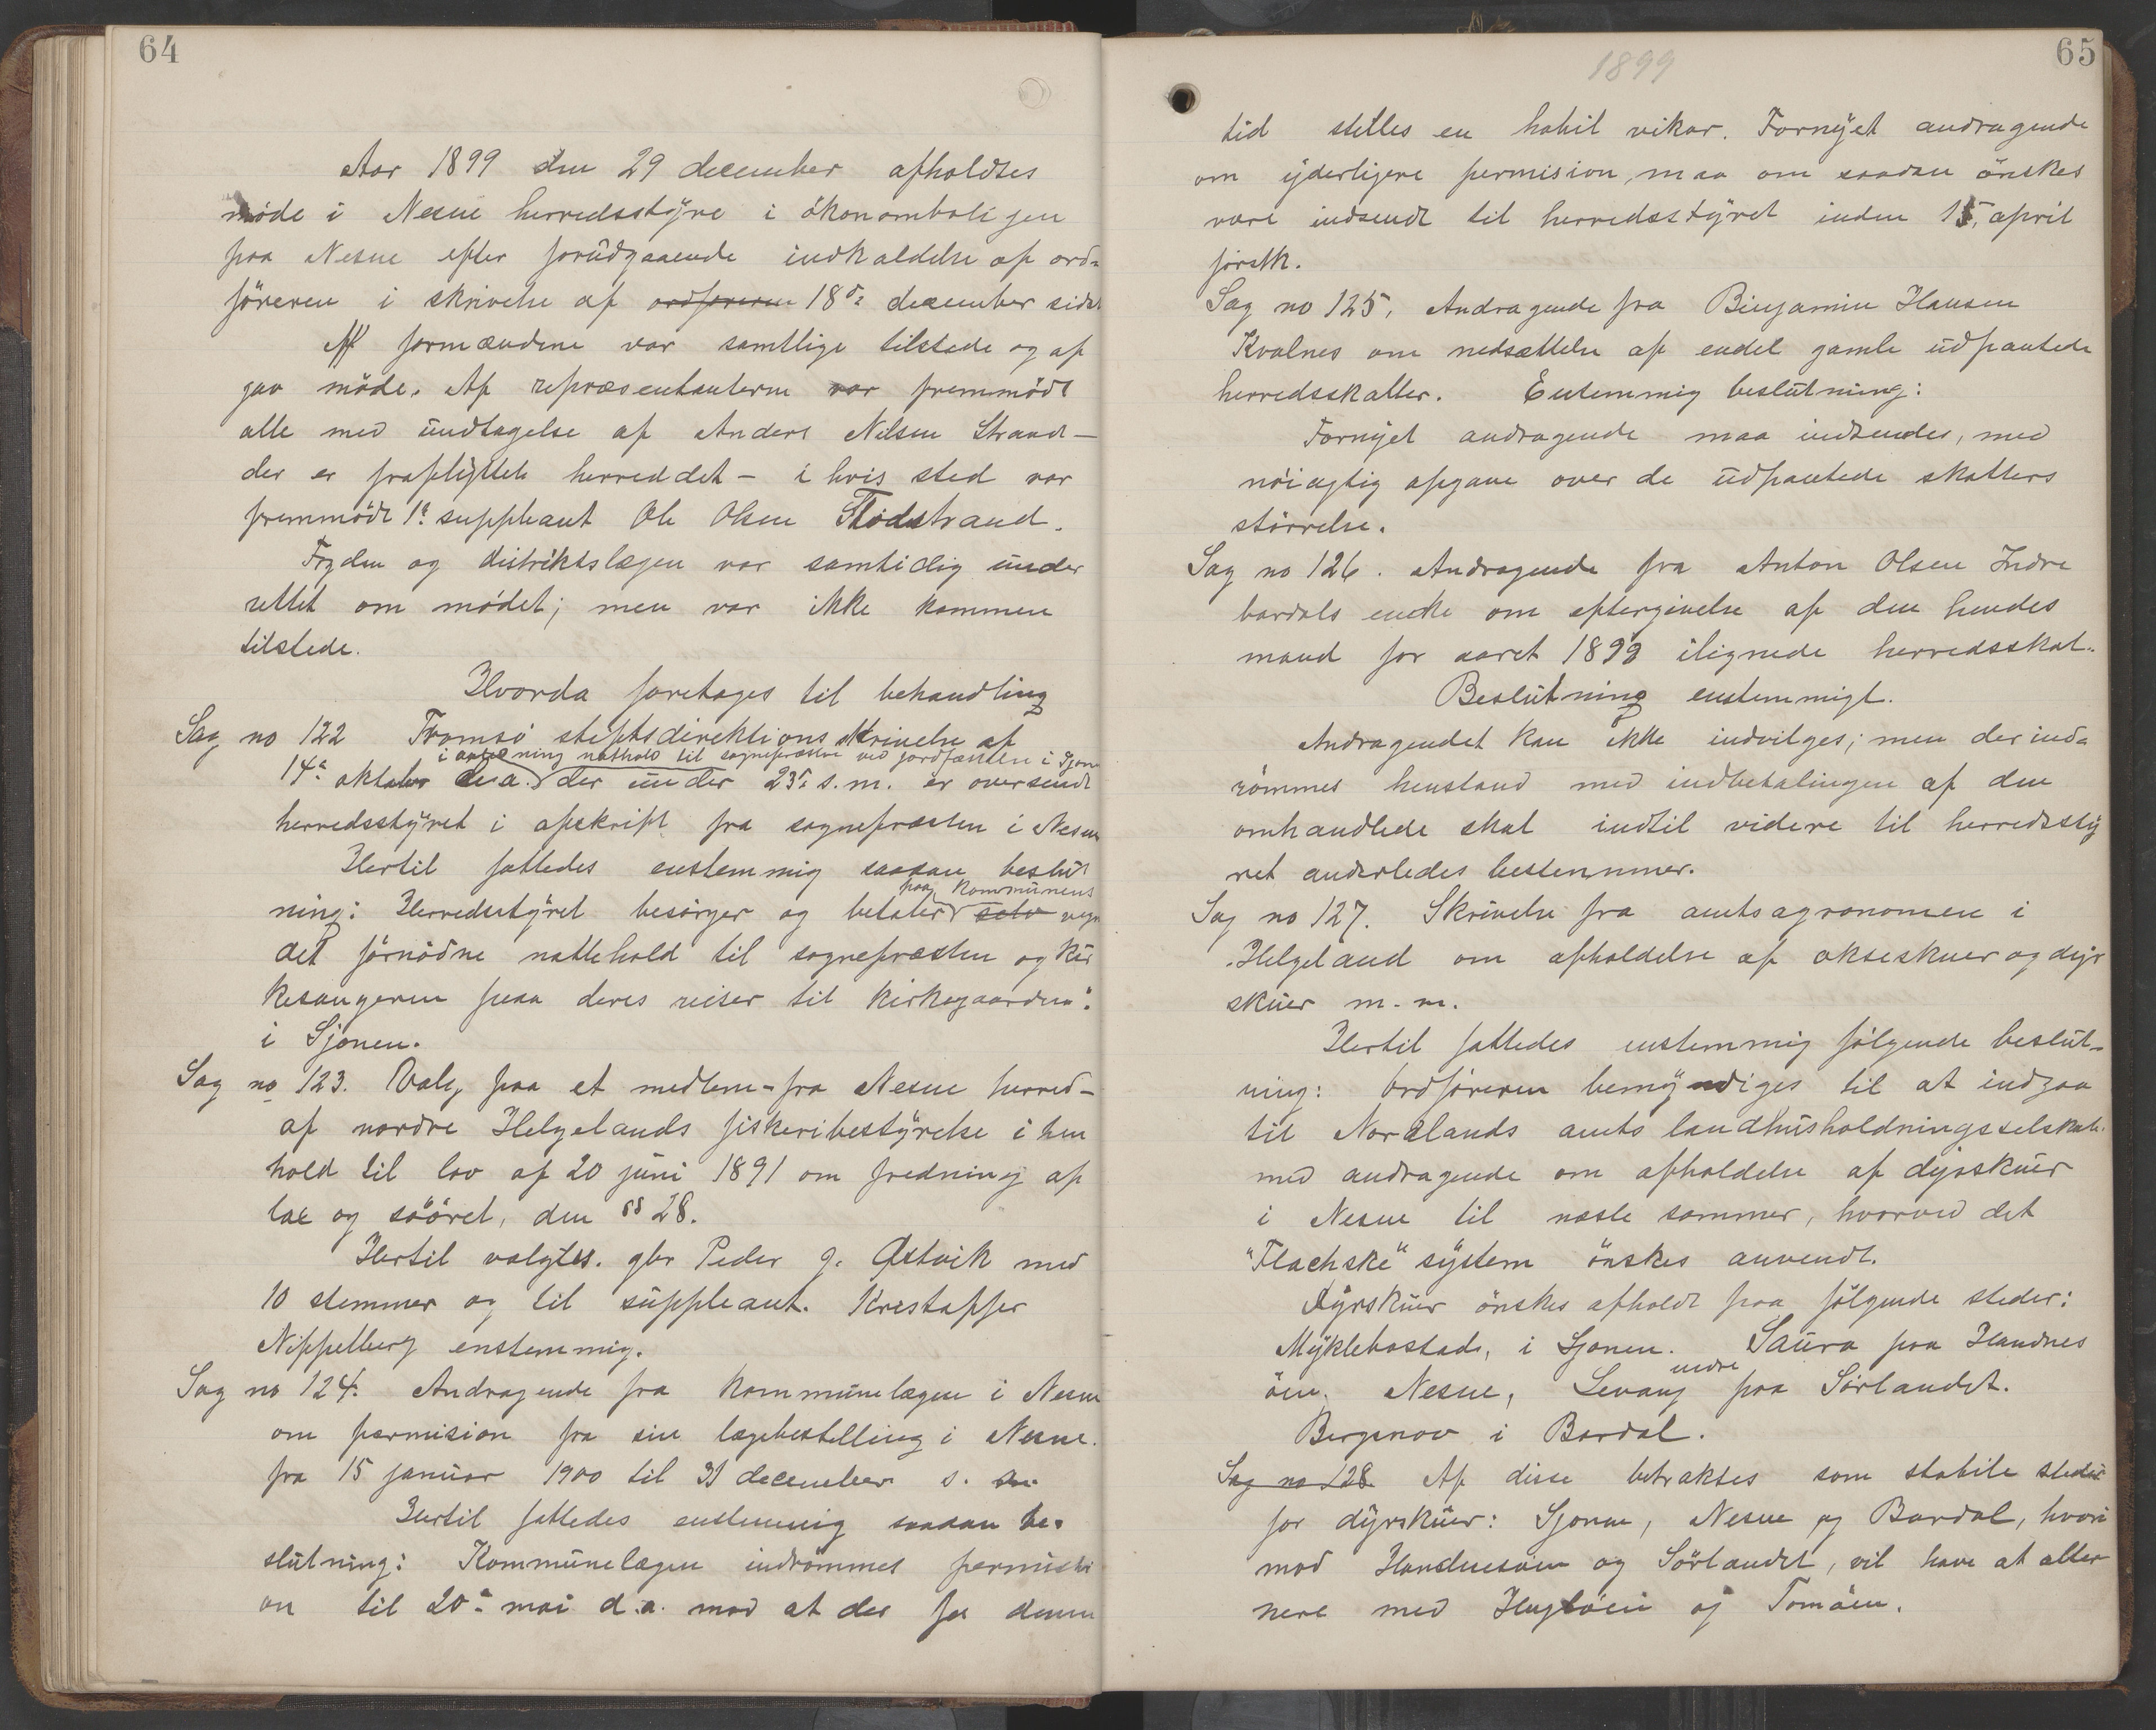 64
Aar 1899 den 29 december afholdtes
möde i Nesne herredsstyre i ökonomboligen
paa Nesne efter forudgaaende indkaldelse af ord=
föreren i skrivelse af ordföreren 18de december sidst
Af formændene var samtlige tilstede og af
gav möde. Af repræsentanterne var fremmödt
alle med undtagelse af Anders Nilsen Strand –
der er fraflyttet herreddet – i hvis sted var
fremmödt 1ste suppleant Ole Olsen Flodstrand.
Fogden og distriktslægen var samtidig under
rettet om mödet; men var ikke kommen
tilstede.
Hvorda foretages til behandling
Sag no 122 Tromsö stiftsdirektions skrivelse af
i natthold til sogneprsten ved jordfæsten i Sjonen
14de oktober d.a. der under 23de s.m. er oversendt
herredsstyret i afskrift fra sognepræsten i Nesne
Hertil fattedes enstemmig saadan beslut
paa kommunens
ning: Herredsstyret besörger og betaler selv vegn
det fornödne nattehold til sognepræsten og kir
kesangeren paa deres reiser til kirkegaarden
i Sjonen.
Sag no 123. Valg paa et medlem – fra Nesne herred –
af nordre Helgelands fiskeribestyrelse i hen
hold til lov af 20 juni 1891 om fredning af
lax og sööret, den §§ 28.
Hertil valgtes. gbr Peder J. Østvik med
10 stemmer og til suppleant. Kristoffer
Nippelberg enstemmig.
Sag no 124. Andragende fra kommunelægen i Nesne
om permision fra sin lægebestilling i Nesne.
fra 15 januar 1900 til 31 december s. aa.
Hertil fattedes enstemmig saadan be=
slutning: Kommunelægen indrömmes permissi
on til 20de mai d.a. mod at der for denne
65
1899
tid stilles en habil vikar. Fornyet andragende
om yderligere permision, maa om saadan önskes
være indsendt til herredsstyret inden 15. april
förstk.
Sag no 125. Andragende fra Binjamin Hansen
Kvalnes om nedsættelse af endel gamle udpantede
herredsskatter. Enstemmig beslutning:
Fornyet andragende maa indsendes, med
nöiagtig opgave over de udpantede skatters
störrelse.
Sag no 126. Andragende fra Anton Olsen Indre
bardals enke om eftergivelse af den hendes
mand for aaret 1899 ilignede herredsskat.
Beslutning enstemmigt.
Andragendet kan ikke indvilges; men der ind=
römmes henstand med indbetalingen af den
omhandlede skat indtil videre til herredssty
ret anderledes bestemmer.
Sag no 127. Skrivelse fra amtsagronomen i
Helgeland om afholdelse af okseskuer og dyr
skuer m. m.
Hertil fattedes enstemmig fölgende beslut=
ning: Ordföreren bemyndiges til at indgaa
til Nordlands amts landhusholdningsselskab.
med andragende om afholdelse af dyrskuer
i Nesne til næste sommer, hvorved det
"Flachske" system önskes anvendt.
Dyrskuer önskes afholdt paa fölgende steder:
Myklebostad, i Sjonen. Saura paa Handnes
indre
öen, Nesne, Levang paa Sörlandet.
Bergsnov i Bardal.
Sag no 128 Af disse betraktes som stabile steder
for dyrskuer: Sjonen, Nesne og Bardal, hvori
mod Handnesöen og Sörlandet, vil have at alter
nere med Huglöen og Tomöen.